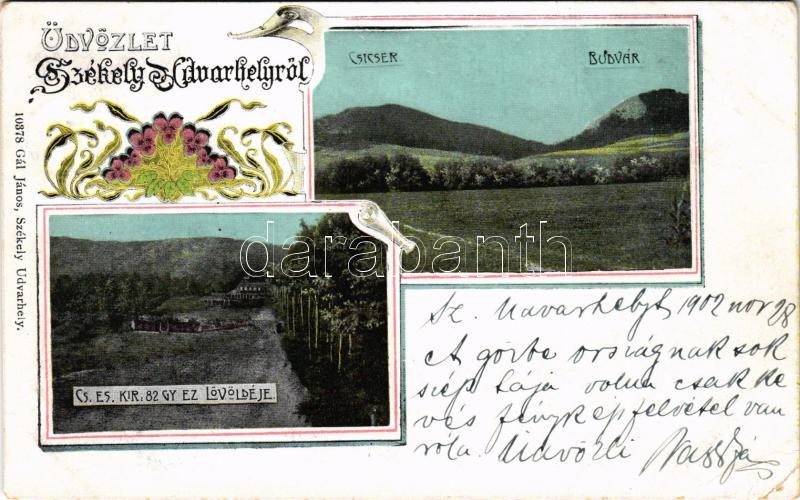 ÜDVÖZLET
Székely Udvarhelyről
CSICSER.
BUDVÁR.
10378 Gál János, Székely Udvarhely.
darabanth
CS. ES. KIR. 82 GY EZ LÖVÖLDÉJE.
Sz. Udvarhelyt 1902 nov 28
A görbe országnak sok
szép tája volna csak ke
vés fényképfelvétel van
róla. Üdvözli